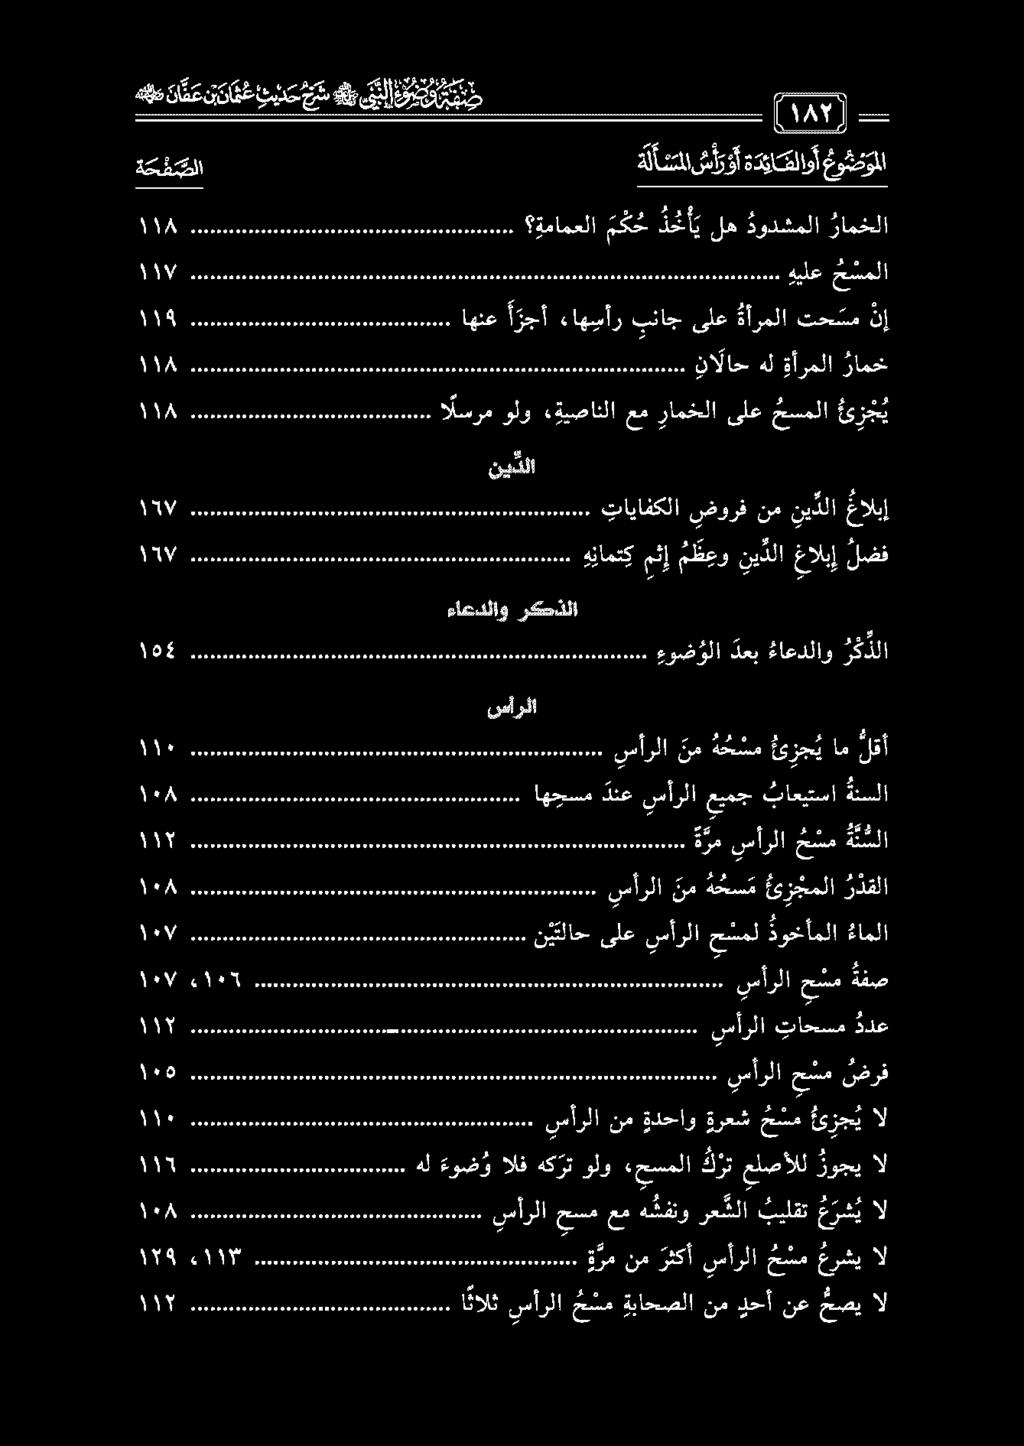 صِفَةُ وُضُوءِ النَّبِيِّ ﷺ شَرْحُ حَدِيثِ عُثْمَانَ بْنِ عَفَّانَ رضي الله عنه
١٨٢
المَوْضُوعُ أَوِ الفَائِدَة أَوْ رَأْسُ المَسْأَلَة الصَّفْحَة
الخمارُ المشدودُ هل يَأْخُذُ حُكْمَ العمامةِ؟ ... ١١٨
المسْحُ عليهِ ... ١١٧
إنْ مسَحت المرأةُ على جانبِ رأسِها، أجزَأَ عنها ... ١١٩
خمارُ المرأةِ له حالَانِ ... ١١٨
يُجْزِئُ المسحُ على الخمارِ مع الناصيةِ، ولو مرسلًا ... ١١٨
الدِّين
إبلاغُ الدِّينِ من فروضِ الكفاياتِ ... ١٦٧
فضلُ إبلاغِ الدِّينِ وعِظَمُ إثمِ كِتمانِهِ ... ١٦٧
الذكر والدعاء
الذِّكْرُ والدعاءُ بعدَ الوُضوءِ ... ١٥٤
الرأس
أقلُّ ما يُجزِئُ مسْحُهُ منَ الرأسِ ... ١١٠
السنةُ استيعابُ جميعِ الرأسِ عندَ مسحِها ... ١٠٨
السُّنَّةُ مسْحُ الرأسِ مرَّةً ... ١١٢
القدْرُ المجْزِئُ مَسحُهُ منَ الرأسِ ... ١٠٨
الماءُ المأخوذُ لمسْحِ الرأسِ على حالتَيْن ... ١٠٧
صفةُ مسْحِ الرأسِ ... ١٠٦، ١٠٧
عددُ مسحاتِ الرأسِ ... ١١٢
فرضُ مسْحِ الرأسِ ... ١٠٥
لا يُجزِئُ مسْحُ شعرةٍ واحدةٍ من الرأسِ ... ١١٠
لا يجوزُ للأصلعِ ترْكُ المسحِ، ولو ترَكه فلا وُضوءَ له ... ١١٦
لا يُشرَعُ تقليبُ الشَّعر ونفشُه مع مسحِ الرأسِ ... ١٠٨
لا يشرعُ مسْحُ الرأسِ أكثرَ من مرَّةٍ ... ١١٣، ١٢٩
لا يصحُّ عن أحدٍ من الصحابةِ مسْحُ الرأسِ ثلاثًا ... ١١٢